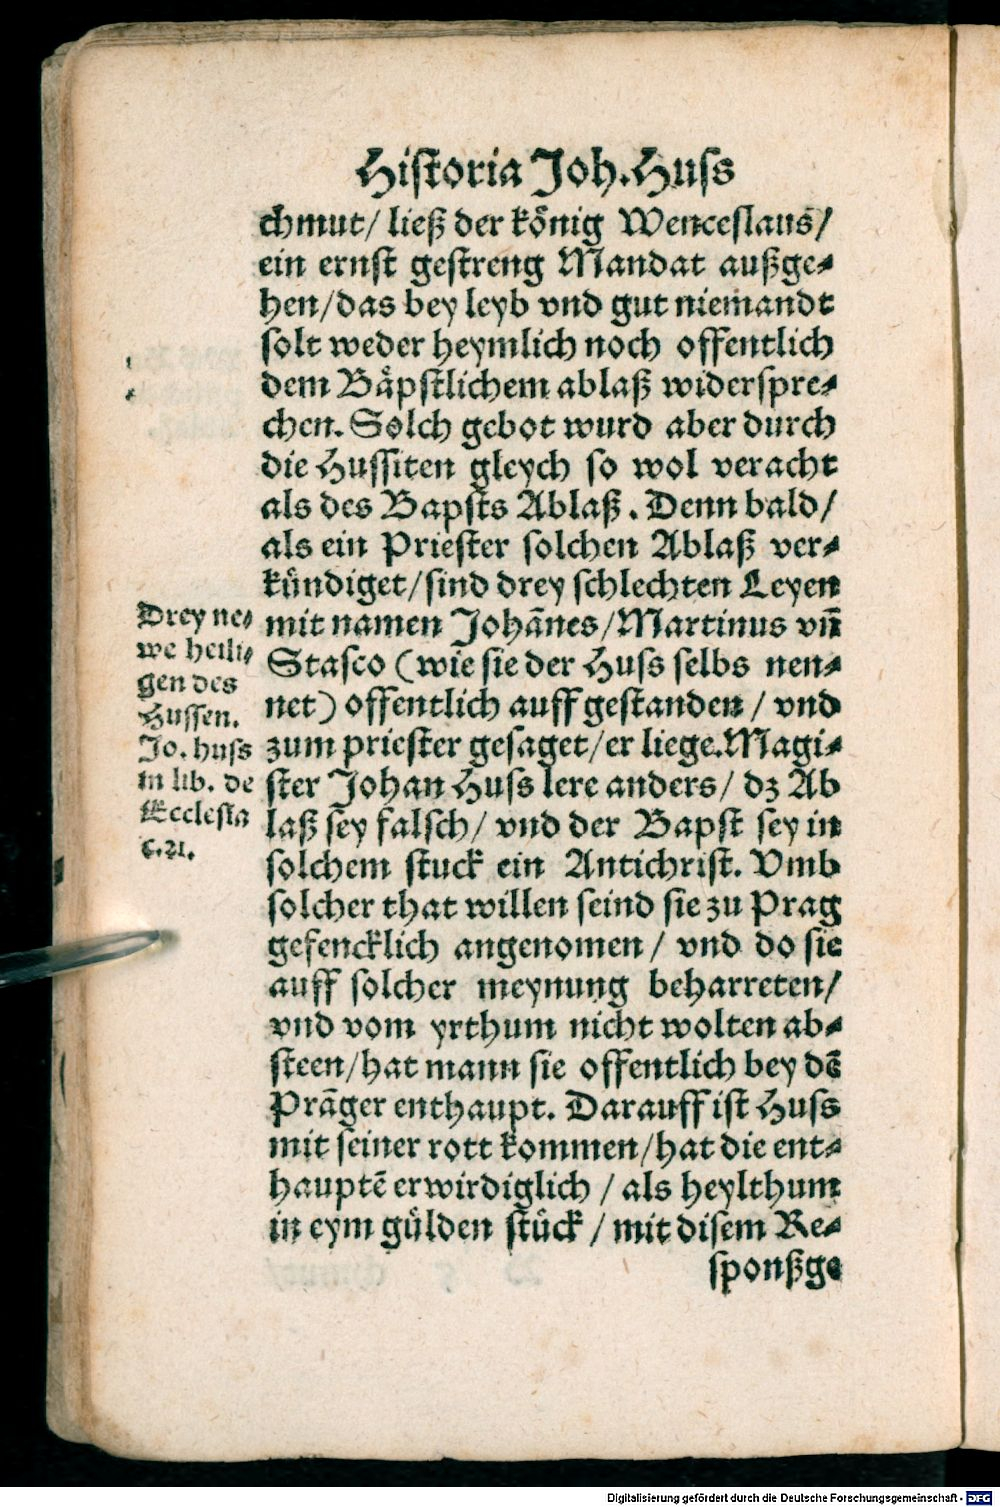 Historia Joh. Huss
chmut/ ließ der koͤnig Wenceslaus/
ein ernst gestreng Mandat außge⸗
hen/das bey leyb vnd gut niemandt
solt weder heymlich noch offentlich
dem Baͤpstlichem ablaß widerspre⸗
chen. Solch gebot wurd aber durch
die Hussiten gleych so wol veracht
als des Bapsts Ablaß. Denn bald/
als ein Priester solchen Ablaß ver⸗
kuͤndiget/sind drey schlechten Leyen
mit namen Johānes/Martinus vñ
Stasco (wie sie der Huss selbs nen⸗
net) offentlich auff gestanden/ vnd
zum priester gesaget/er liege. Magi⸗
ster Johan Huss lere anders/ dz Ab
laß sey falsch/ vnd der Bapst sey in
solchem stuck ein Antichrist. Vmb
solcher that willen seind sie zu Prag
gefencklich angenomen/ vnd do sie
auff solcher meynung beharreten/
vnd vom yrthum nicht wolten ab⸗
steen/hat mann sie offentlich bey dē
Prāger enthaupt. Darauff ist Huss
mit seiner rott kommen/hat die ent⸗
hauptē erwirdiglich/ als heylthum
in eym guͤlden stuͤck/ mit disem Re⸗
sponßge
Drey ne⸗
we heili⸗
gen des
Hussen.
Jo. huss
in lib. de
Ecclesia
c.21.
Digitalisierung gefördert durch die Deutsche Forschungsgemeinschaft - DFG